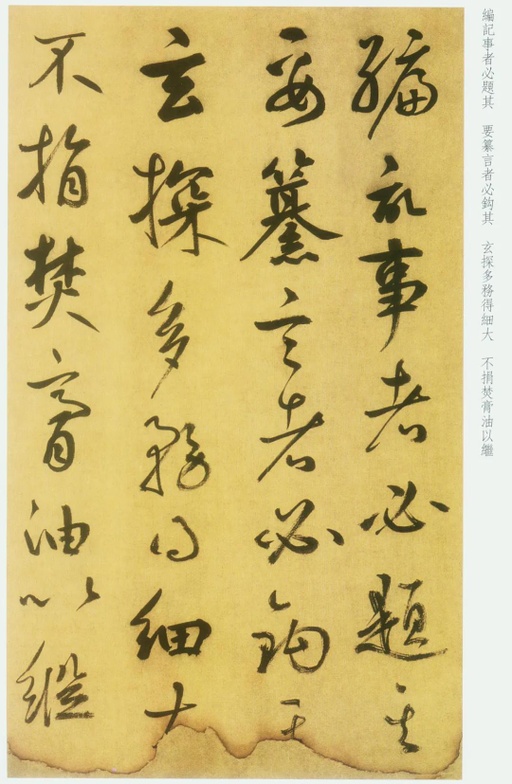 編記事者必題其 要纂言者必鈎其 玄探多務得細大 不捐焚膏油以繼
編記事者必題其
要纂言者必鈎其
玄探多務得細大
不捐焚膏油以繼